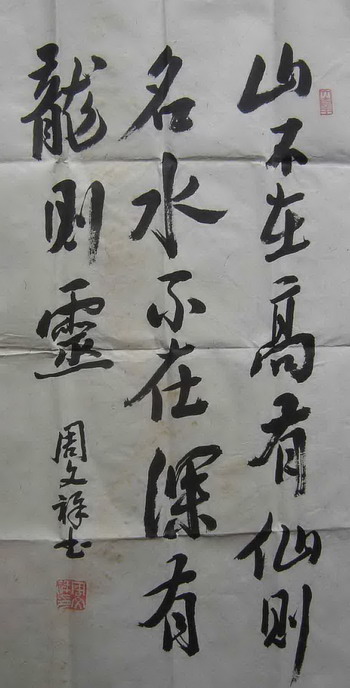 山不在高有仙則
名水不在深有
龍則靈
周文祥书